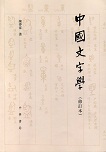 中國文字學
（修訂本）
中華書局